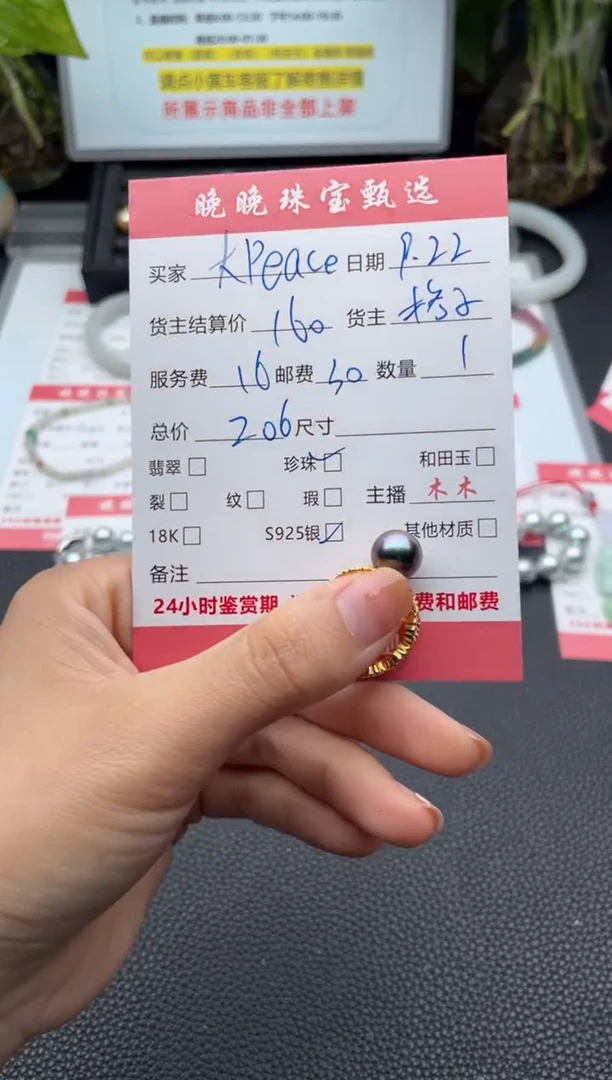 请点小黄车客服了解寄售详情
所展示商品非全部上架
晚晚珠宝甄选
买家 KPeace 日期 9.22
货主结算价 160 货主
服务费 16 邮费 30 数量 1
总价 206 尺寸
翡翠 珍珠 和田玉
裂 纹 瑕 主播 木木
18K S925银 其他材质
备注
24小时鉴赏期 费和邮费